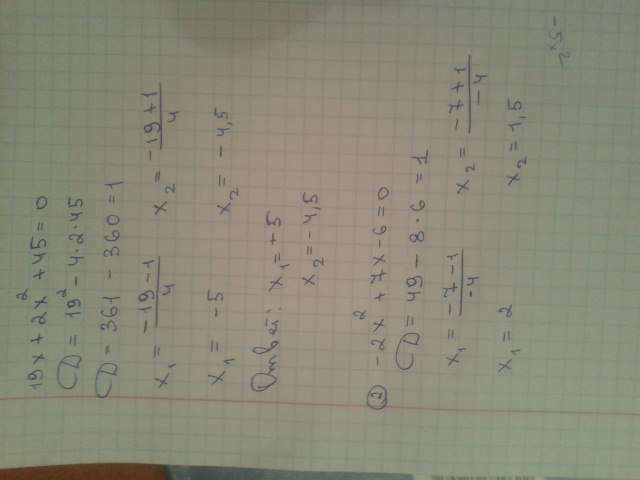 19x+2x²+45=0
D=19²-4·2·45
D=361-360=1
x₁=(-19-1)/4 x₂=(-19+1)/4
x₁=-5 x₂=-4,5
Ответ: x₁=+5
x₂=-4,5
② -2x²+7x-6=0
D=49-8·6=1
x₁=(-7-1)/-4 x₂=(-7+1)/-4
x₁=2 x₂=1,5